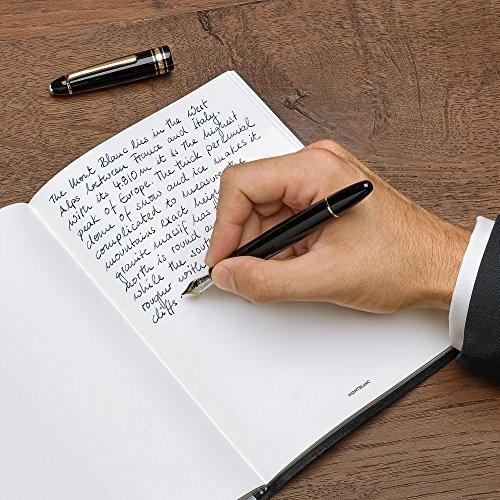 The Mont Blanc lies in the West
Alps between France and Italy.
With its 4.810 m it is the highest
peak of Europe. The thick perennial
dome of snow and ice makes it
complicated to measure the
mountains exact
granite massif has
North is round
while the
rougher with
cliffs
MONTBLANC